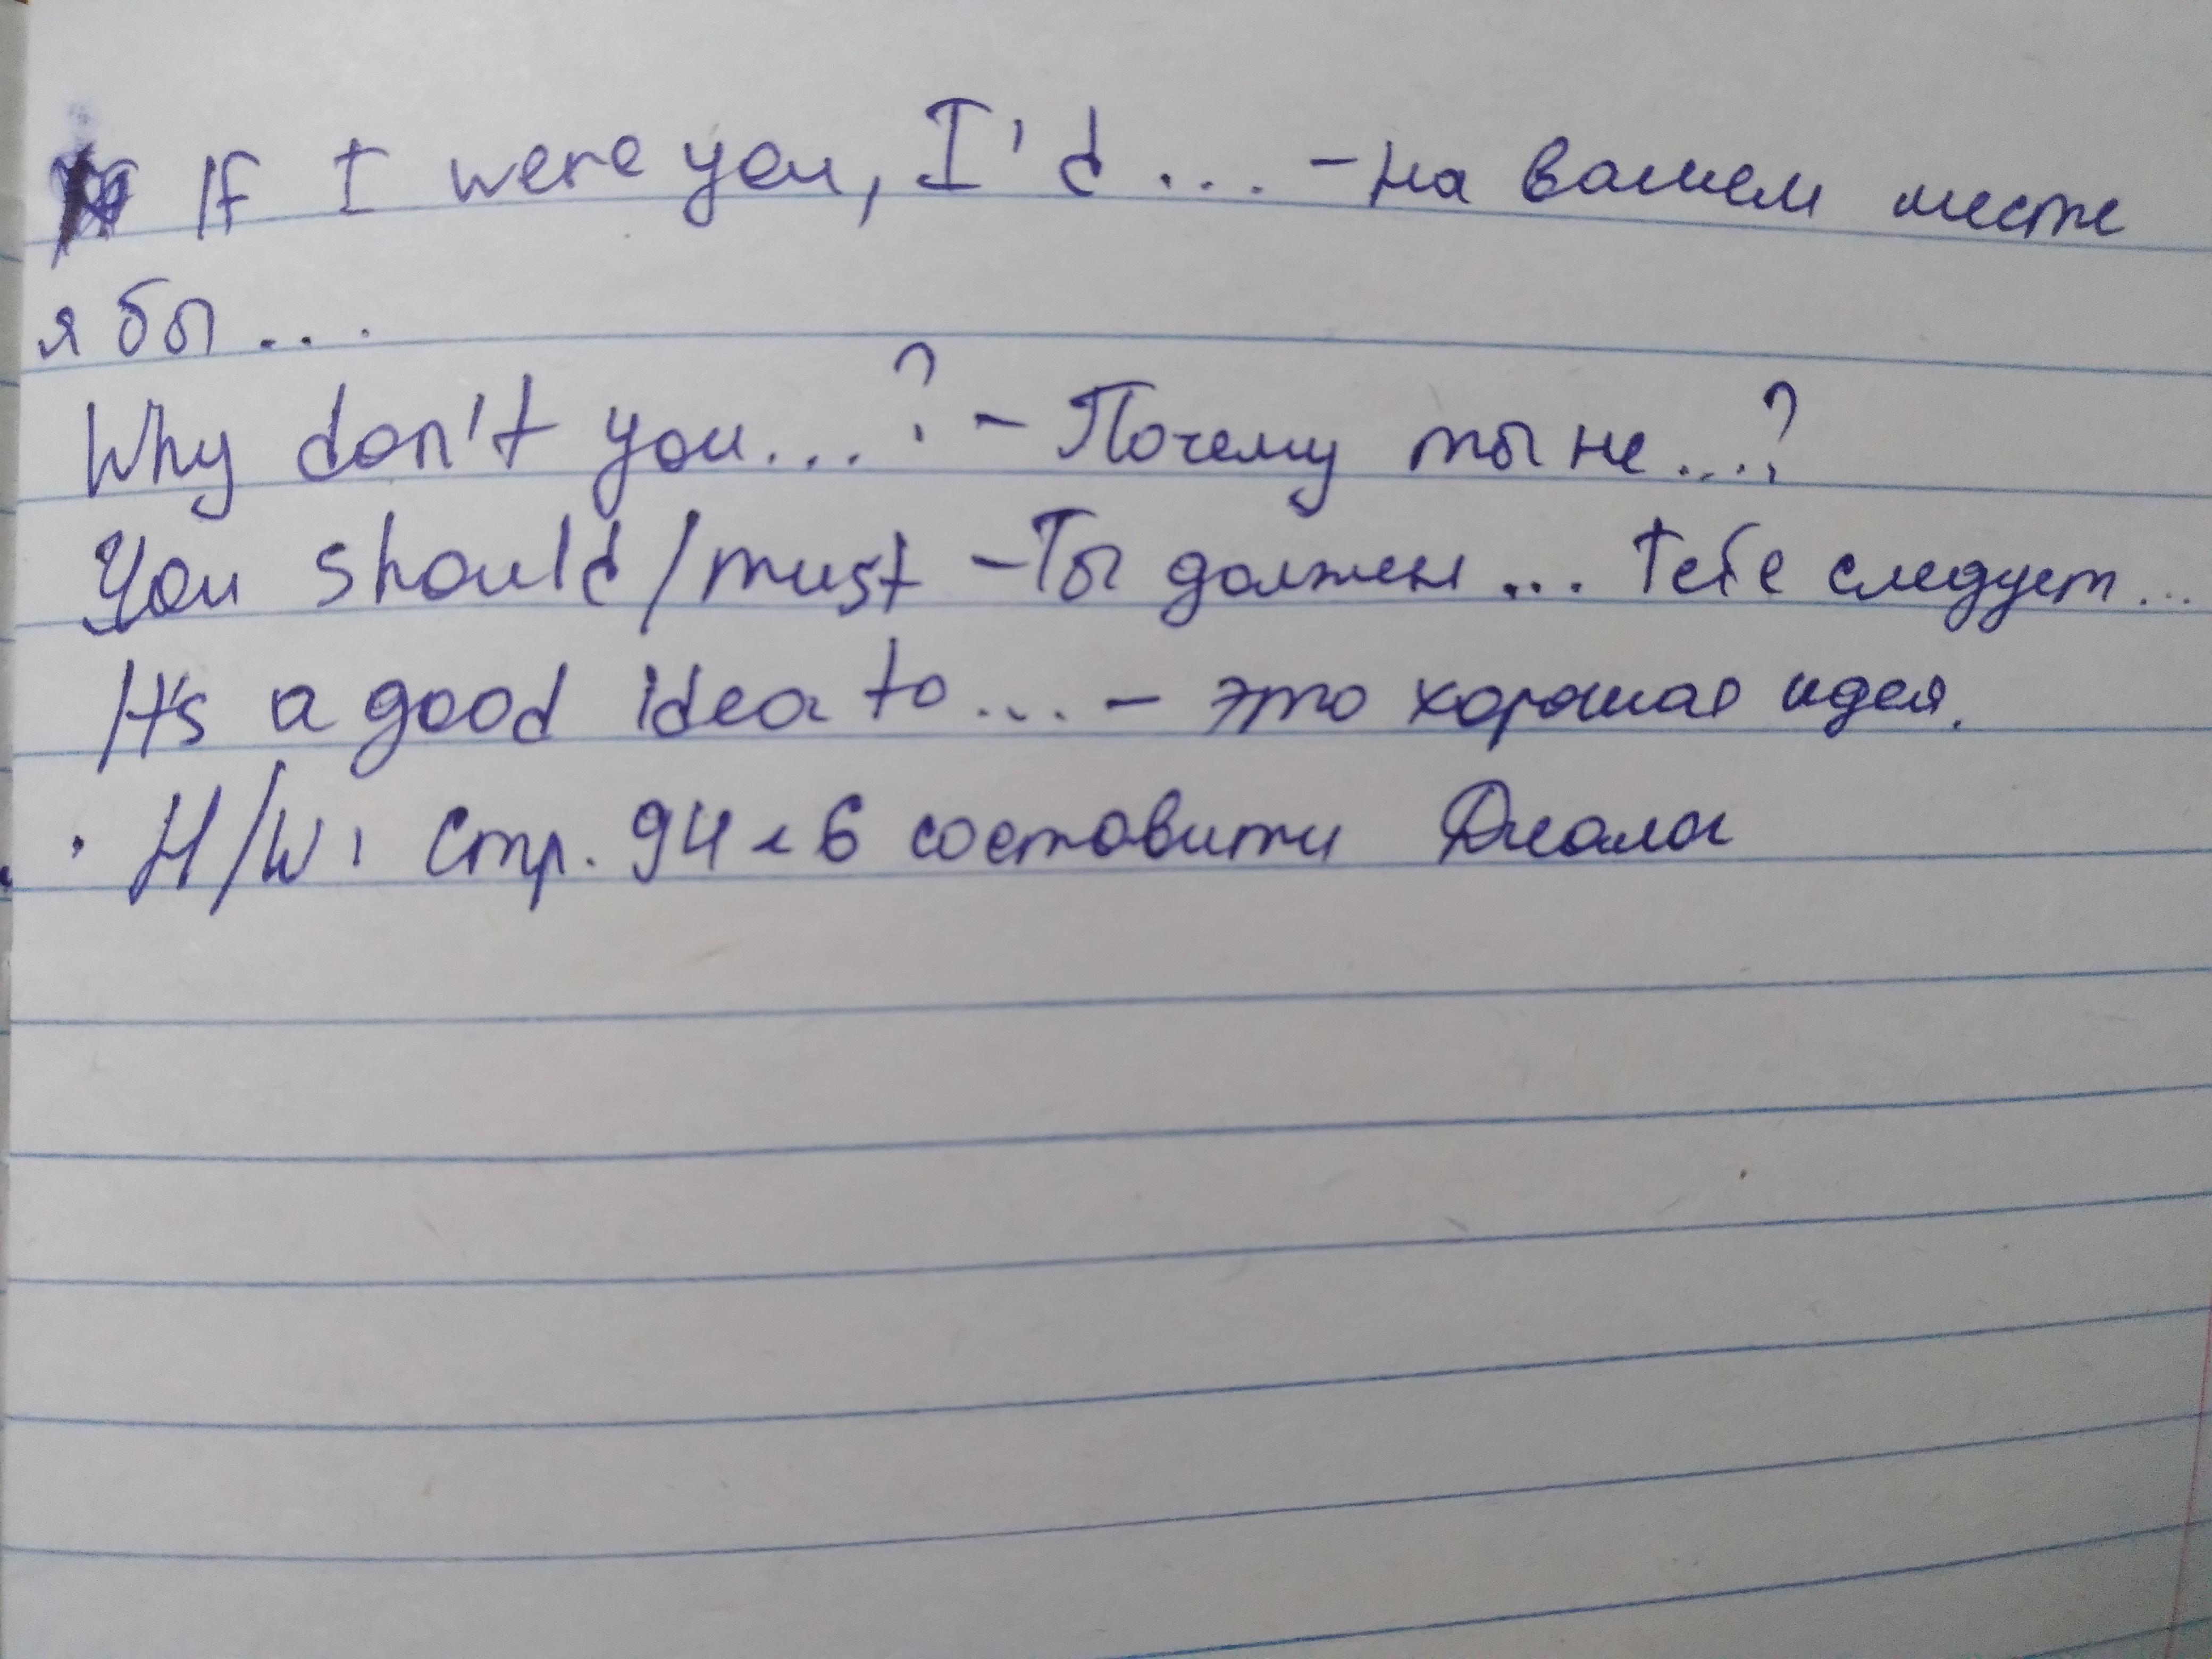 If I were you, I'd ... - на вашем месте
я бы ...
Why don't you...? - Почему ты не...?
You should/must - Ты должен ... Тебе следует...
It's a good idea to... - это хорошая идея.
H/W: Стр. 94 6 составити Диалог